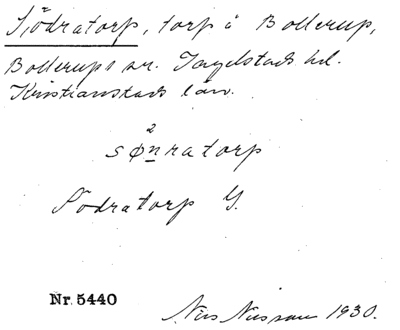 Södratorp, torp å Bollerup,
Bollerups sn. Ingelstads hd.
Kristianstads län.
2
sønratorp
Södratorp G.
Nr. 5440
Nils Nilsson 1930.